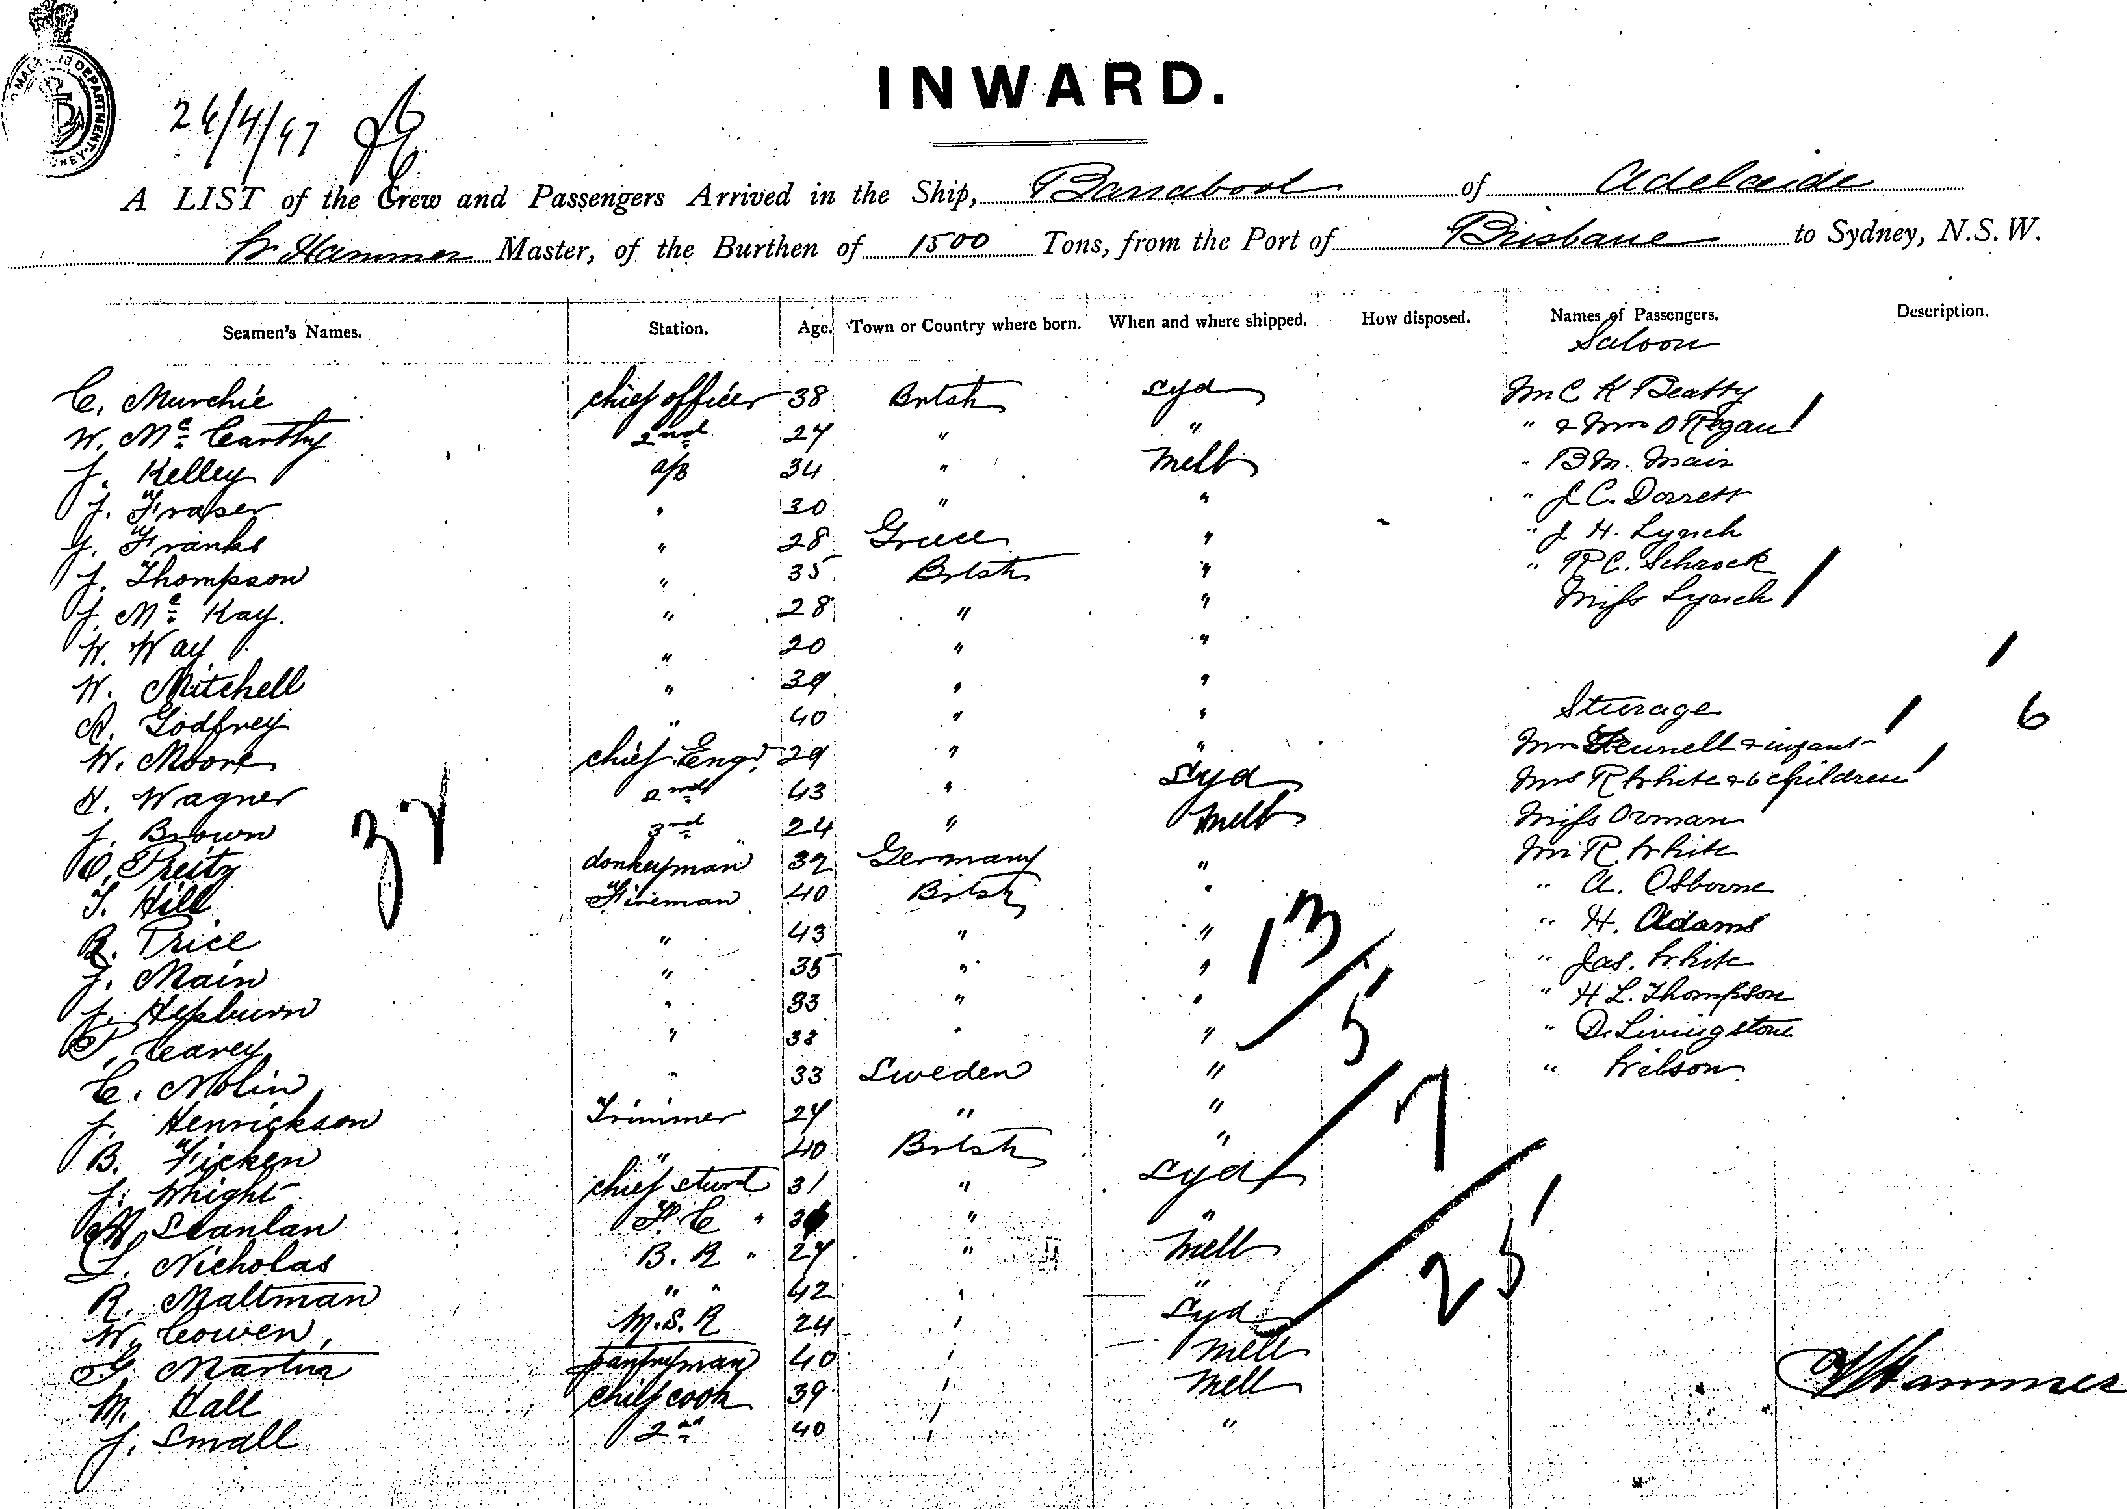 26/4/97
INWARD.
A LIST of the Crew and Passengers Arrived in the Ship, Barrabool of Adelaide
W Hammer Master, of the Burthen of 1500 Tons, from the Port of Brisbane to Sydney, N.S.W.
Seamen's Names. Station. Age. Town or Country where born. When and where shipped. How disposed. Names of Passengers. Description.
Saloon
C. Murchie chief officer 38 Brtsh Syd Mr C K Beatty
W. Mc Carthy 2nd 27 " " " & Mrs O Regan /
J. Kelley a/b 34 " Melb " B M. Mair
J. Fraser " 30 " " " J C. Dorrett
J. Franks " 28 Greece " " J H. Lynch
J. Thompson " 35 Brtsh " " R C. Schrock
J. Mc Kay. " 28 " " Miss Lynch /
W. Way " 20 " " /
W. Mitchell " 39 " "
A. Godfrey " 40 " " Sturage 6
W. Moore chief Engr. 29 " " Mrs Fennell & infant /
H. Wagner 2nd 43 " Syd Mrs R White & 6 children /
J. Brown 3rd 24 " Melb Miss Orman
32
C. Preitz donkeyman 32 Germany " Mr R. White
T. Hill Fireman 40 Brtsh " " A. Osborne
R. Price " 43 " " " H. Adams
13
J. Main " 35 " " " Jas. White
J. Hepburn " 33 " " " H L. Thompson
5
P. Carey " 38 " " " D. Livingstone
C. Nolin " 33 Sweden " " Wilson
J. Henrickson Trimmer 27 " "
7
B. Ficken " 40 Brtsh "
J. Wright chief stwd 31 " Syd
M Scanlan F. C " 3 " "
L. Nicholas B. R " 27 " Melb
25
R. Maltman " " 42 " "
W. Cowen, M.S.R 24 " Syd
G. Martin pantryman 40 " Melb
M. Hall chief cook 39 " Melb
J. Small 2nd 40 " "
W Hammer